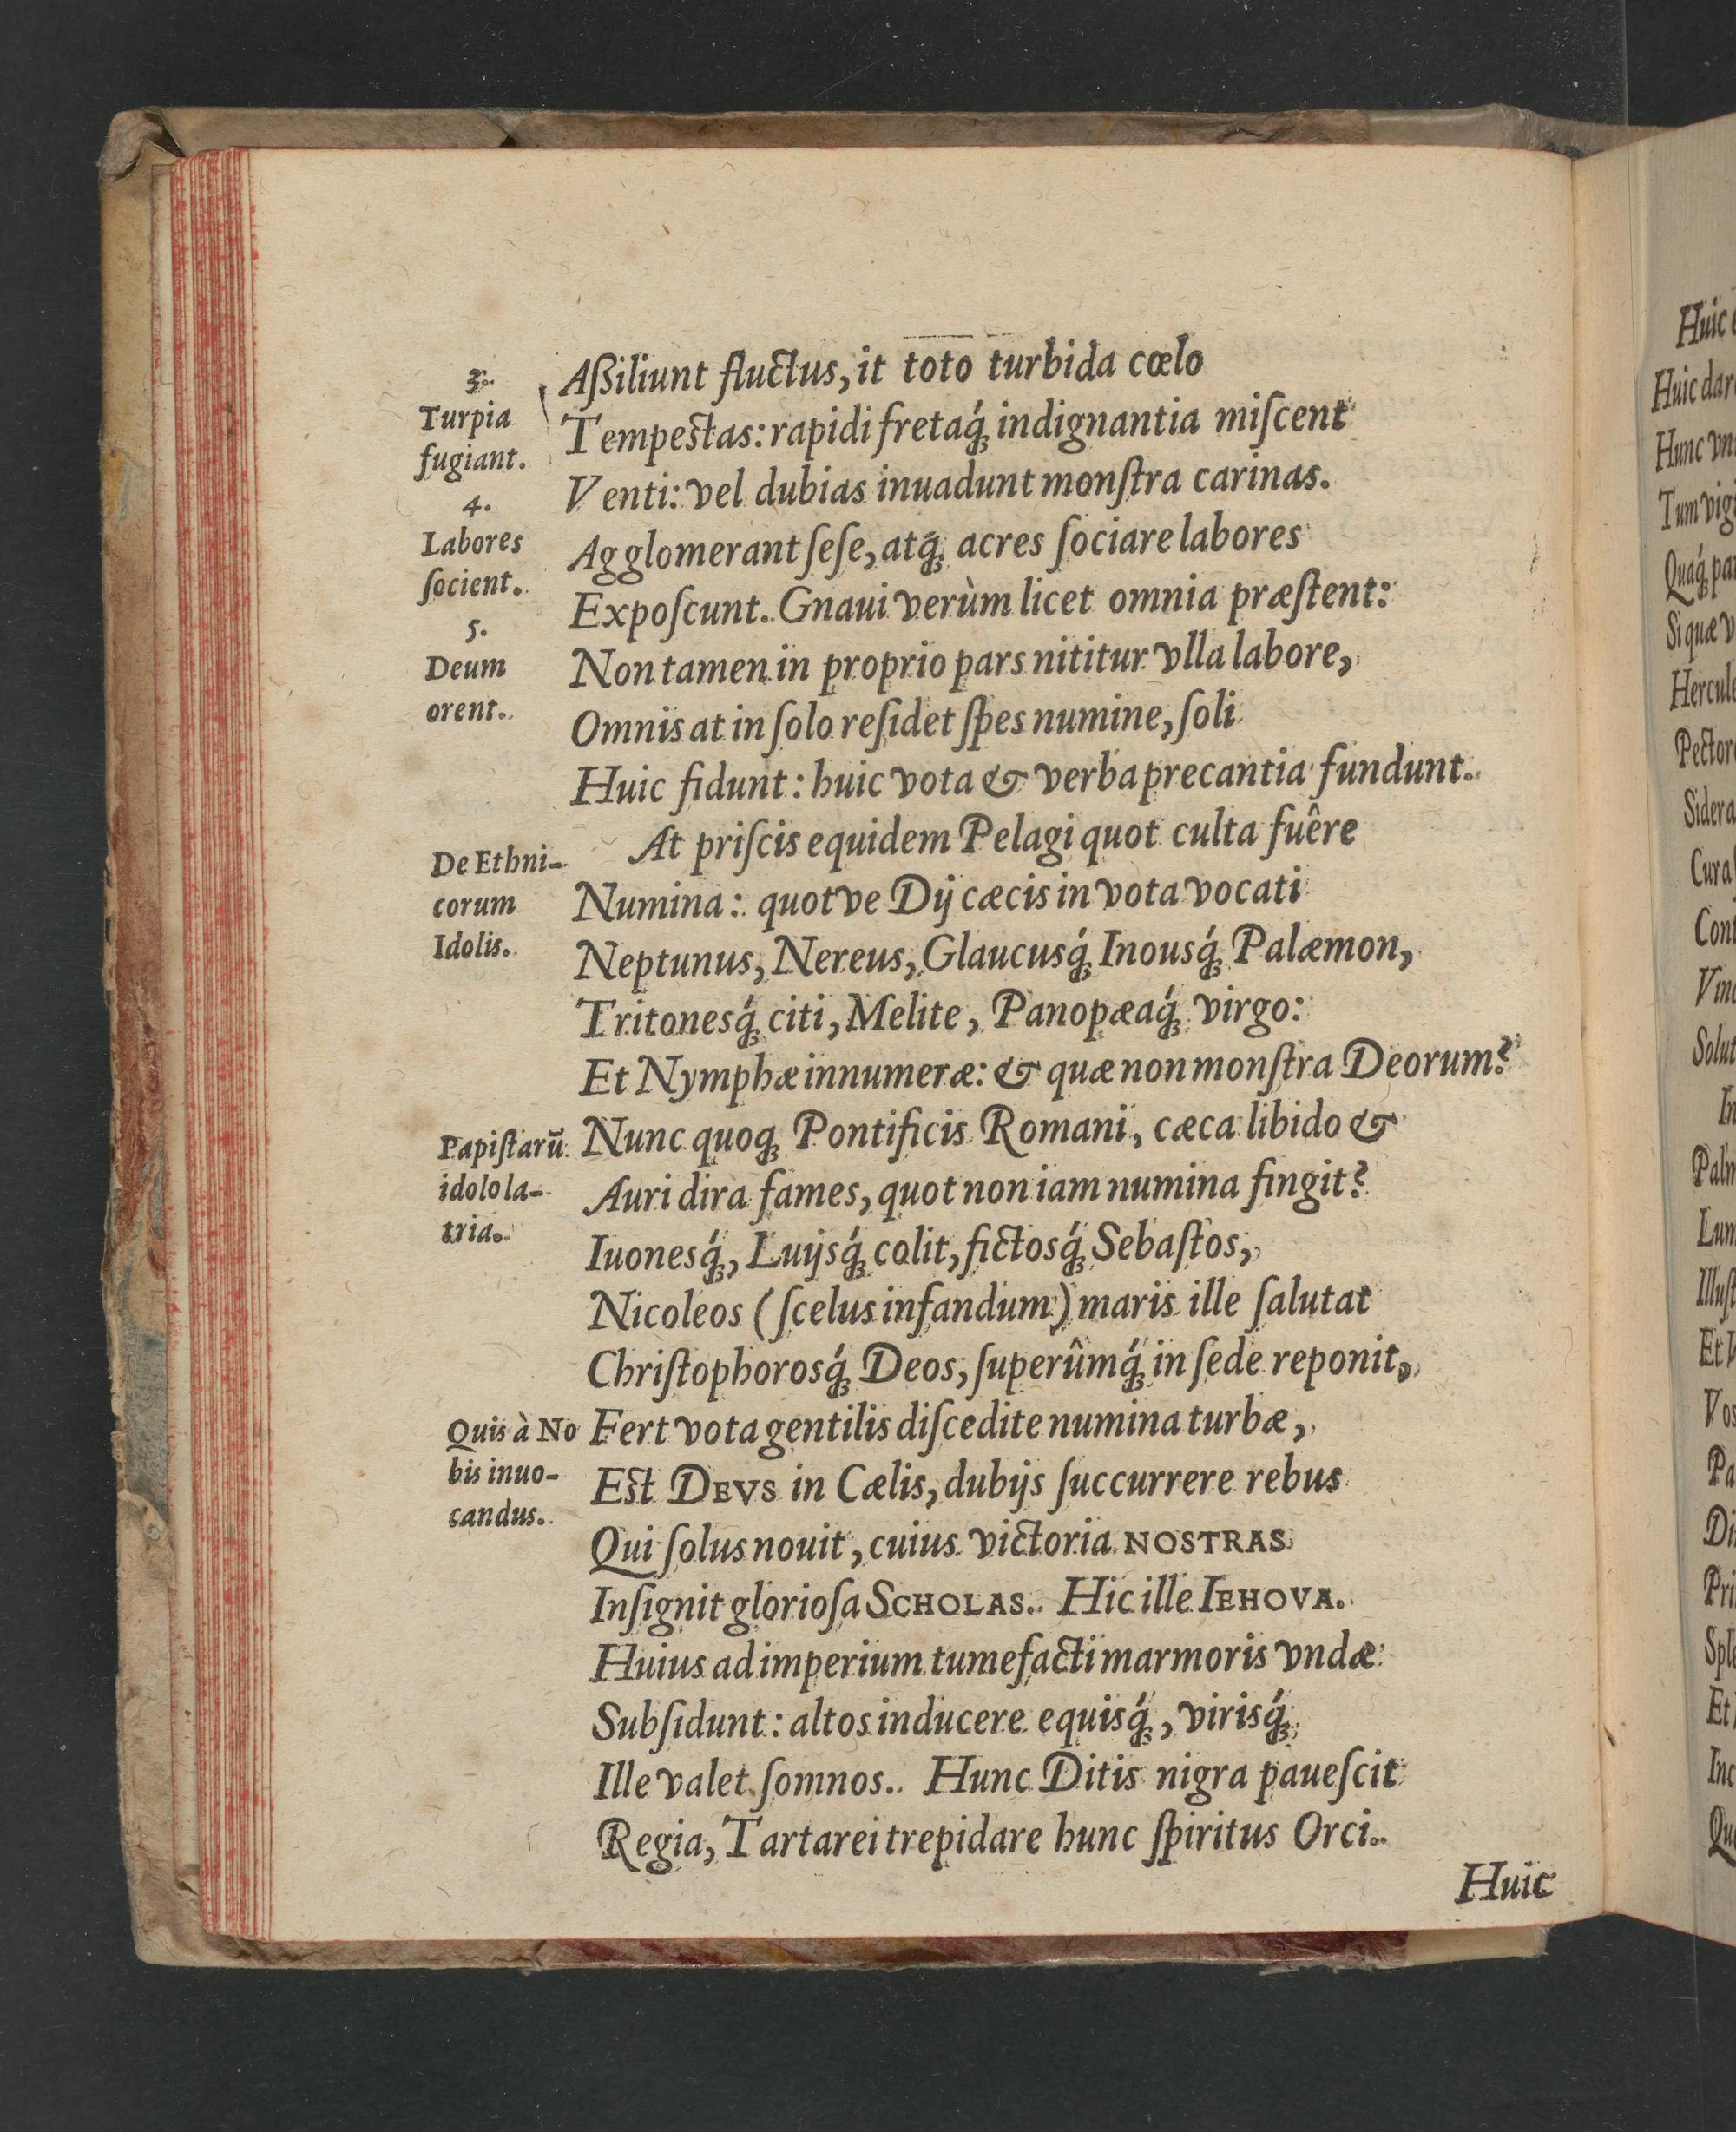 3.
Turpia
fugiant.
4.
Labores
ſocient.
5.
Deum
orent.
Aßiliunt fluctus, it toto turbida cœlo
Tempestas: rapidi fretaq́ꝫ indignantia miſcent
Venti: vel dubias inuadunt monſtra carinas.
Agglomerant ſeſe, atq́ꝫ acres ſociare labores
Expoſcunt. Gnaui verùm licet omnia præſtent:
Non tamen in proprio pars nititur vlla labore,
Omnis at in ſolo reſidet ſpes numine, ſoli
Huic fidunt: huic vota & verba precantia fundunt.
De Ethni-
corum
Idolis.
At priſcis equidem Pelagi quot culta fuêre
Numina: quotve Dij cæcis in vota vocati
Neptunus, Nereus, Glaucusq́ꝫ Inousq́ꝫ Palæmon,
Tritonesq́ꝫ citi, Melite, Panopæaq́ꝫ virgo:
Et Nymphæ innumeræ: & quæ non monſtra Deorum?
Papiſtarũ
idolola-
tria.
Nunc quoqꝫ Pontificis Romani, cæca libido &
Auri dira fames, quot non iam numina fingit?
Iuonesq́ꝫ, Luijsq́ꝫ colit, fictosq́ꝫ Sebaſtos,
Nicoleos (ſcelus infandum) maris ille ſalutat
Chriſtophorosq́ꝫ Deos, ſuperûmq́ꝫ in ſede reponit,
Quis à No
bis inuo-
candus.
Fert vota gentilis diſcedite numina turbæ,
Est DEVS in Cælis, dubijs ſuccurrere rebus
Qui ſolus nouit, cuius victoria NOSTRAS
Inſignit glorioſa SCHOLAS. Hic ille IEHOVA.
Huius ad imperium tumefacti marmoris vndæ
Subſidunt: altos inducere equisq́ꝫ, virisq́ꝫ
Ille valet ſomnos. Hunc Ditis nigra paueſcit
Regia, Tartarei trepidare hunc ſpiritus Orci.
Huic
Huic
Huic dar
Hunc vn
Tum vigi
Quaq́ꝫ par
Si quæ v
Hercule
Pector
Sidera
Cura
Cont
Vinc
Solut
In
Palm
Lum
Illuſt
Et
Vos
Pa
Di
Pri
Sple
Et
Inc
Qu